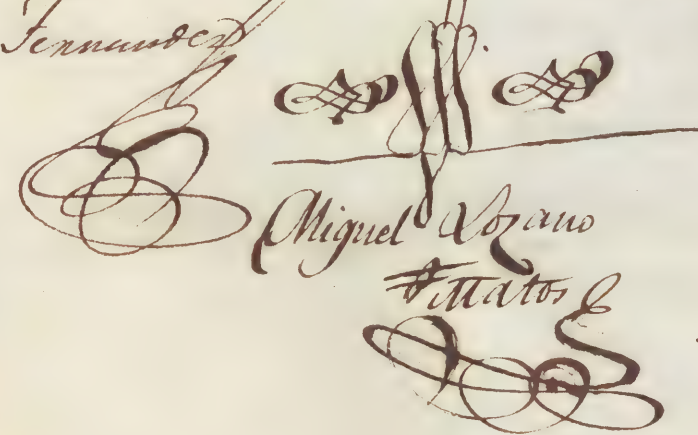 Fernandez
Miguel Lozano
Matos